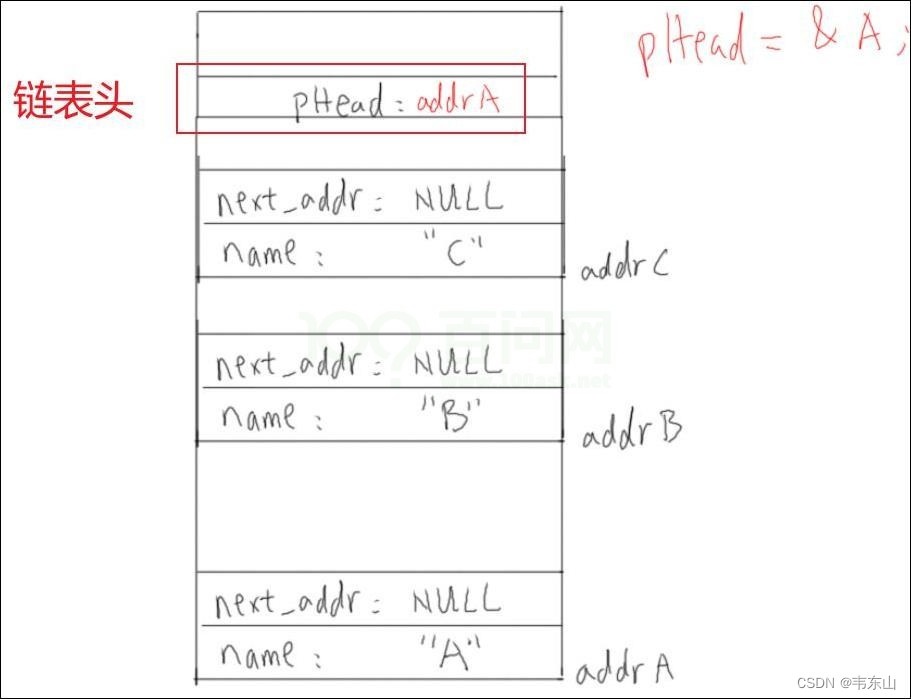 pHead = & A;
链表头
pHead: addrA
next_addr: NULL
name: "C"
addrC
next_addr: NULL
name: "B"
addrB
next_addr: NULL
name: "A"
addrA
100 百问网
www.100ask.net
CSDN @韦东山